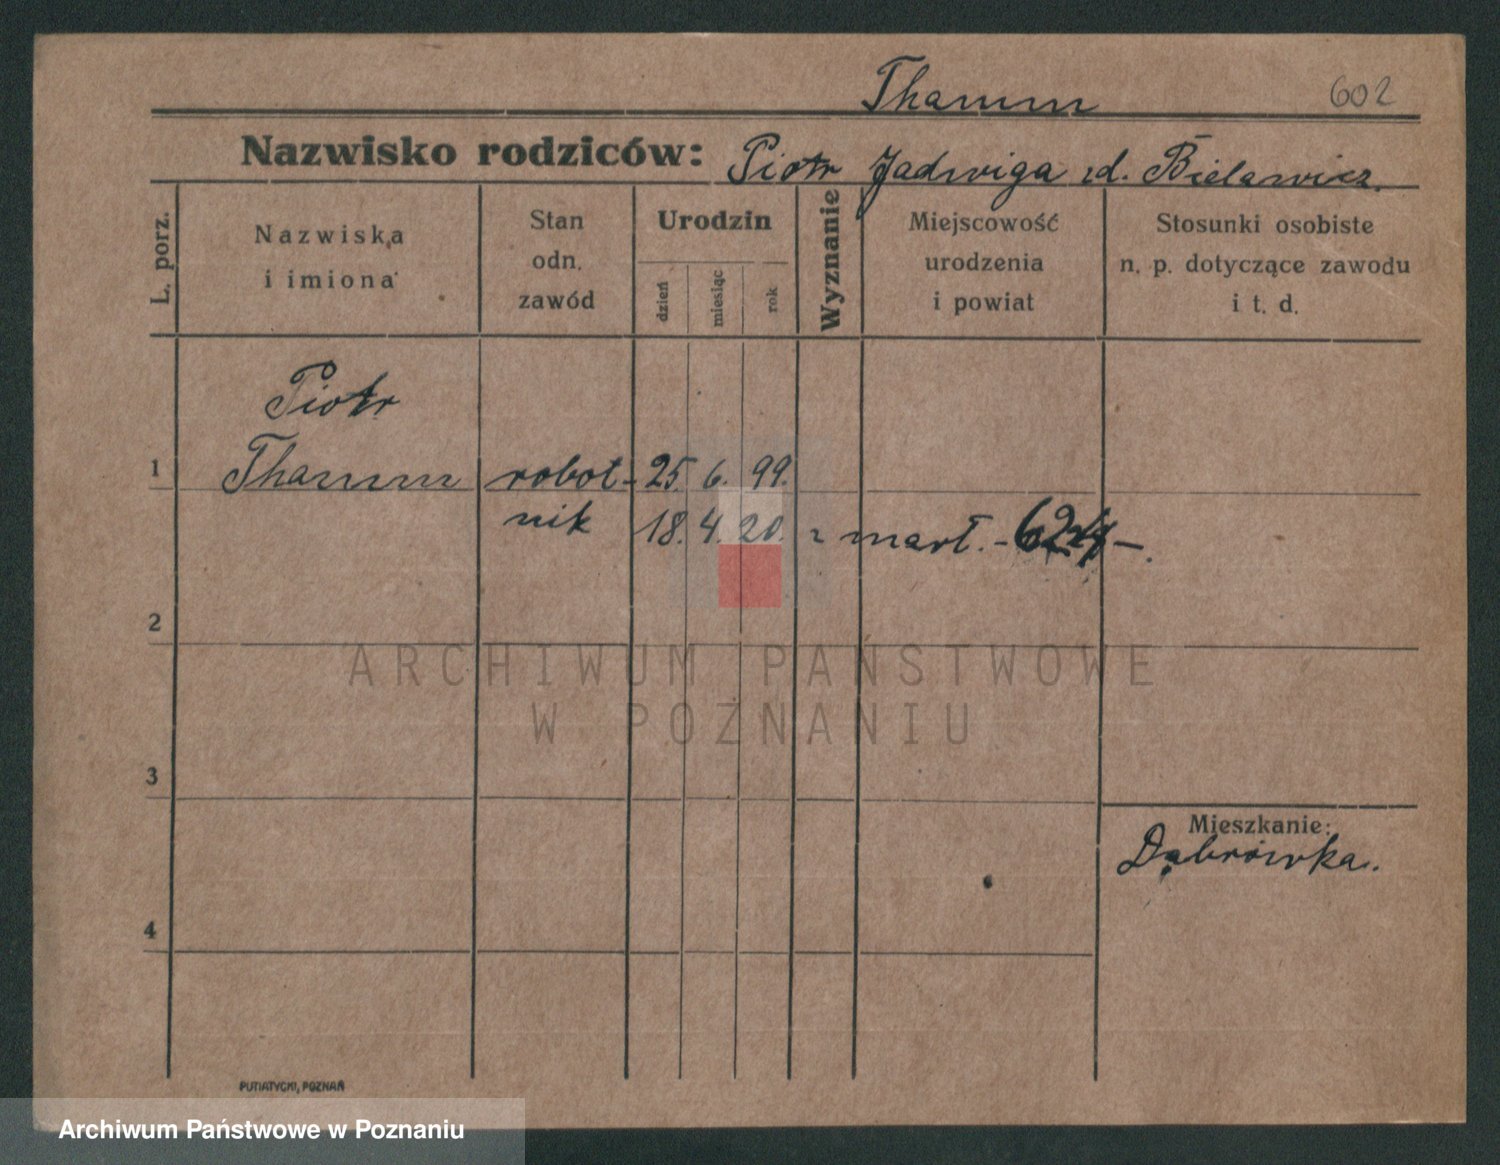 Thamm 602
Nazwisko rodziców: Piotr Jadwiga zd. Bielawicz.
L. porz.
Nazwiska
i imiona
Stan
odn.
zawód
Urodzin
dzień
miesiąc
rok
Wyznanie
Miejscowość
urodzenia
i powiat
Stosunki osobiste
n. p. dotyczące zawodu
i t. d.
Piotr
1 Thamm robot- 25. 6. 99.
nik 18. 4. 20. zmarł. - 624 - .
2
3
Mieszkanie:
Dąbrówka.
4
PUTIATYCKI, POZNAŃ
ARCHIWUM PAŃSTWOWE
W POZNANIU
Archiwum Państwowe w Poznaniu